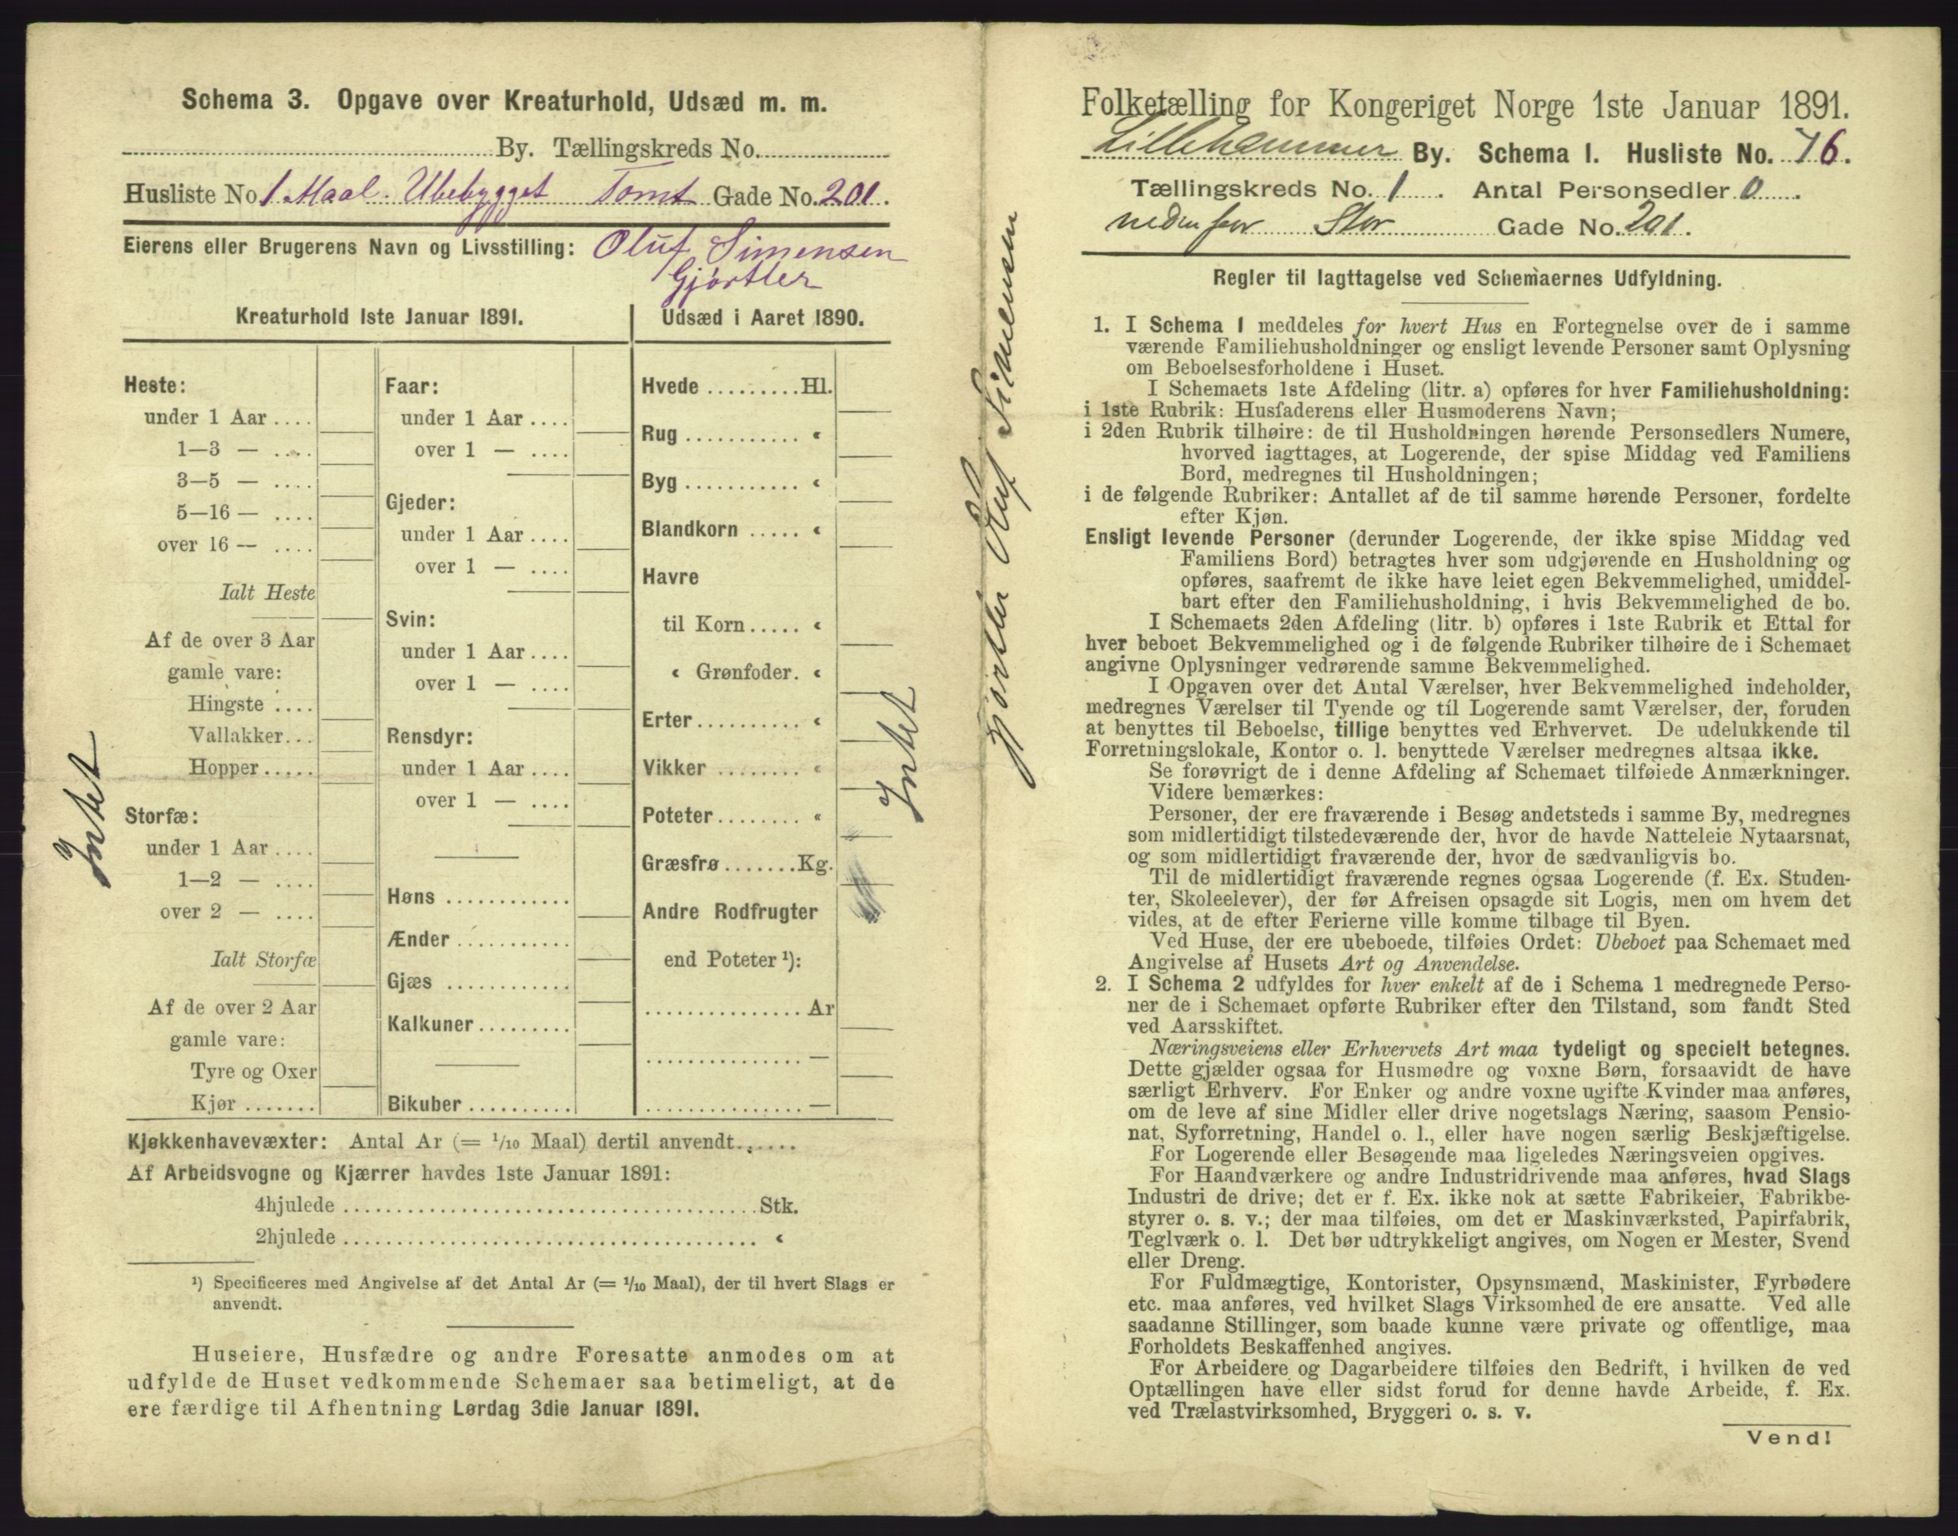 Schema 3. Opgave over Kreaturhold, Udsæd m. m.
By. Tællingskreds No.
Husliste No 1 Maal. Ubebygget Tomt Gade No. 201.
Eierens eller Brugerens Navn og Livsstilling: Oluf Simensen
Gjørtler
Kreaturhold 1ste Januar 1891.
Heste:
under 1 Aar ....
1—3 — ....
3—5 — ....
5—16 — ....
over 16 — ....
Ialt Heste
Af de over 3 Aar
gamle vare:
Hingste ....
Vallakker...
Hopper.....
Storfæ:
under 1 Aar ....
1—2 — ....
over 2 — ....
Ialt Storfæ
Af de over 2 Aar
gamle vare:
Tyre og Oxer
Kjør .......
Intet
Faar:
under 1 Aar ....
over 1 — ....
Gjeder:
under 1 Aar ....
over 1 — ....
Svin:
under 1 Aar ....
over 1 — ....
Rensdyr:
under 1 Aar ....
over 1 — ....
Høns ............
Ænder ...........
Gjæs ............
Kalkuner.........
Bikuber ..........
Udsæd i Aaret 1890.
Hvede .........Hl.
Rug ........... «
Byg ........... «
Blandkorn ..... «
Havre
til Korn..... «
« Grønfoder. «
Erter.......... «
Vikker ......... «
Poteter........ «
Græsfrø .......Kg.
Andre Rodfrugter
end Poteter ¹):
............... Ar
............... —
............... —
Intet
Kjøkkenhavevæxter: Antal Ar (= 1/10 Maal) dertil anvendt......
Af Arbeidsvogne og Kjærrer havdes 1ste Januar 1891:
4hjulede ....................................... Stk.
2hjulede ....................................... «
¹) Specificeres med Angivelse af det Antal Ar (= 1/10 Maal), der til hvert Slags er
anvendt.
Huseiere, Husfædre og andre Foresatte anmodes om at
udfylde de Huset vedkommende Schemaer saa betimeligt, at de
ere færdige til Afhentning Lørdag 3die Januar 1891.
Gjørtler Oluf Simensen
Folketælling for Kongeriget Norge 1ste Januar 1891.
Lillehammer By. Schema 1. Husliste No. 76.
Tællingskreds No. 1. Antal Personsedler 0.
nedenfor Stor Gade No. 201.
Regler til Iagttagelse ved Schemaernes Udfyldning.
1. I Schema 1 meddeles for hvert Hus en Fortegnelse over de i samme
værende Familiehusholdninger og ensligt levende Personer samt Oplysning
om Beboelsesforholdene i Huset.
I Schemaets 1ste Afdeling (litr. a) opføres for hver Familiehusholdning:
i 1ste Rubrik: Husfaderens eller Husmoderens Navn;
i 2den Rubrik tilhøire: de til Husholdningen hørende Personsedlers Numere,
hvorved iagttages, at Logerende, der spise Middag ved Familiens
Bord, medregnes til Husholdningen;
i de følgende Rubriker: Antallet af de til samme hørende Personer, fordelte
efter Kjøn.
Ensligt levende Personer (derunder Logerende, der ikke spise Middag ved
Familiens Bord) betragtes hver som udgjørende en Husholdning og
opføres, saafremt de ikke have leiet egen Bekvemmelighed, umiddel-
bart efter den Familiehusholdning, i hvis Bekvemmelighed de bo.
I Schemaets 2den Afdeling (litr. b) opføres i 1ste Rubrik et Ettal for
hver beboet Bekvemmelighed og i de følgende Rubriker tilhøire de i Schemaet
angivne Oplysninger vedrørende samme Bekvemmelighed.
I Opgaven over det Antal Værelser, hver Bekvemmelighed indeholder,
medregnes Værelser til Tyende og til Logerende samt Værelser, der, foruden
at benyttes til Beboelse, tillige benyttes ved Erhvervet. De udelukkende til
Forretningslokale, Kontor o. l. benyttede Værelser medregnes altsaa ikke.
Se forøvrigt de i denne Afdeling af Schemaet tilføiede Anmærkninger.
Videre bemærkes:
Personer, der ere fraværende i Besøg andetsteds i samme By, medregnes
som midlertidigt tilstedeværende der, hvor de havde Natteleie Nytaarsnat,
og som midlertidigt fraværende der, hvor de sædvanligvis bo.
Til de midlertidigt fraværende regnes ogsaa Logerende (f. Ex. Studen-
ter, Skoleelever), der før Afreisen opsagde sit Logis, men om hvem det
vides, at de efter Ferierne ville komme tilbage til Byen.
Ved Huse, der ere ubeboede, tilføies Ordet: Ubeboet paa Schemaet med
Angivelse af Husets Art og Anvendelse.
2. I Schema 2 udfyldes for hver enkelt af de i Schema 1 medregnede Perso-
ner de i Schemaet opførte Rubriker efter den Tilstand, som fandt Sted
ved Aarsskiftet.
Næringsveiens eller Erhvervets Art maa tydeligt og specielt betegnes.
Dette gjælder ogsaa for Husmødre og voxne Børn, forsaavidt de have
særligt Erhverv. For Enker og andre voxne ugifte Kvinder maa anføres,
om de leve af sine Midler eller drive nogetslags Næring, saasom Pensio-
nat, Syforretning, Handel o. l., eller have nogen særlig Beskjæftigelse.
For Logerende eller Besøgende maa ligeledes Næringsveien opgives.
For Haandværkere og andre Industridrivende maa anføres, hvad Slags
Industri de drive; det er f. Ex. ikke nok at sætte Fabrikeier, Fabrikbe-
styrer o. s. v.; der maa tilføies, om det er Maskinværksted, Papirfabrik,
Teglværk o. l. Det bør udtrykkeligt angives, om Nogen er Mester, Svend
eller Dreng.
For Fuldmægtige, Kontorister, Opsynsmænd, Maskinister, Fyrbødere
etc. maa anføres, ved hvilket Slags Virksomhed de ere ansatte. Ved alle
saadanne Stillinger, som baade kunne være private og offentlige, maa
Forholdets Beskaffenhed angives.
For Arbeidere og Dagarbeidere tilføies den Bedrift, i hvilken de ved
Optællingen have eller sidst forud for denne havde Arbeide, f. Ex.
ved Trælastvirksomhed, Bryggeri o. s. v.
Vend!